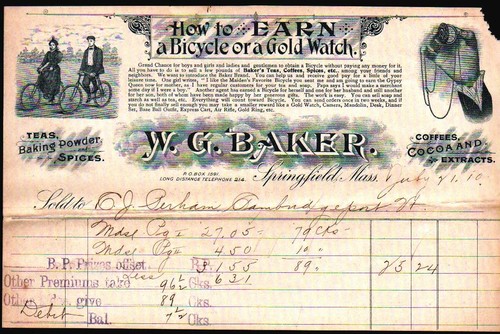 How to EARN
a Bicycle or a Gold Watch.
Grand Chance for boys and girls and ladies and gentlemen to obtain a Bicycle without paying any money for it.
All you have to do is to sell a few pounds of Baker's Teas, Coffees, Spices, etc., among your friends and
neighbors. We want to introduce the Baker Brand. You can help us and receive good pay for a little of your
leisure time. One girl writes, "I like the Maiden's Favorite Bicycle you sent me and am going to earn the Gypsy
Queen now for mother, as I have regular customers for your tea and soap. Papa says I would make a merchant
some day if I were a boy." Another agent has earned a Bicycle for herself and one for her husband and still another
for her son, both of whom have been made happy by her generous gifts. The work is easy. You can sell soap and
starch as well as tea, etc. Everything will count toward Bicycle. You can send orders once in two weeks, and if
you do not finally sell enough you may take a smaller reward like a Gold Watch, Camera, Mandolin, Desk, Dinner
Set, Base Ball Outfit, Express Cart, Air Rifle, Gold Ring, etc.
TEAS,
Baking Powder,
SPICES.
W. G. BAKER.
COFFEES,
COCOA AND
EXTRACTS.
P.O. BOX 1591.
LONG DISTANCE TELEPHONE
Springfield, Mass. July 21. 10.
Sold to C J Derham Cambridgeport Vt
Mdse Pg I 27.05 - 79 cks -
Mdse Pg II 4.50 10
B. P. Prizes offset. B. P. 31 55 89 25 24
Other Premiums take Less 96 1/2 Cks. 6 31
Other give 89 Cks.
Debit Bal. 7 1/2 Cks.